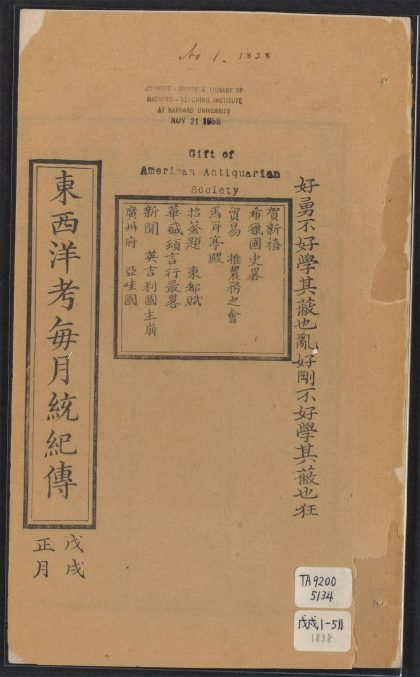 No 1. 1838
CHINESE - JAPANESE LIBRARY OF
HARVARD - YENCHING INSTITUTE
AT HARVARD UNIVERSITY
NOV 21 1956
Gift of
American Antiquarian
Society
好勇不好學其蔽也亂好剛不好學其蔽也狂
賀新禧
希臘國史畧
貿易 推農務之會
馬耳亭殿
招簽題 東都賦
華盛頓言行最畧
新聞 英吉利國主崩
廣州府 亞哇國
東西洋考每月統紀傳
戊戌
正月
TA9200
5134
戊戌,1-5月
1838